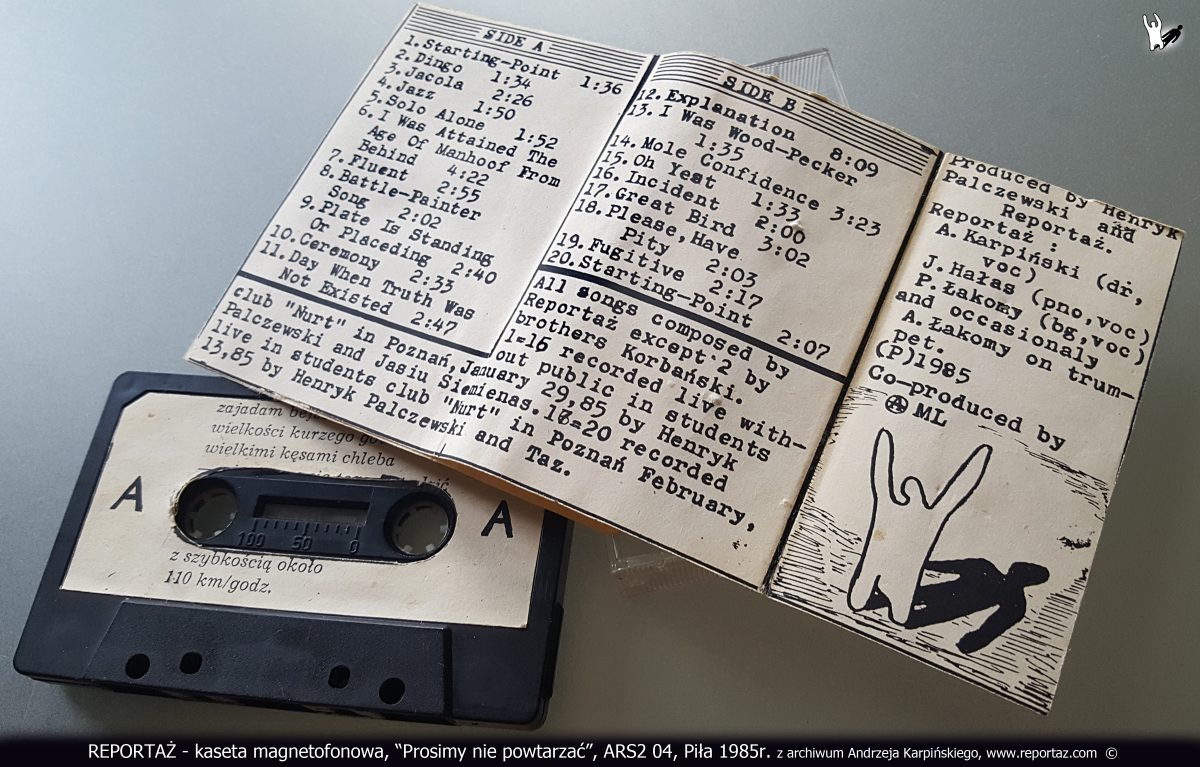 SIDE A
1.Starting-Point 1:36
2.Dingo 1:34
3.Jacola 2:26
4.Jazz 1:50
5.Solo Alone 1:52
6.I Was Attained The
Age Of Manhoof From
Behind 4:22
7.Fluent 2:55
8.Battle-Painter
Song 2:02
9.Plate Is Standing
Or Placeding 2:40
10.Ceremony 2:33
11.Day When Truth Was
Not Existed 2:47
SIDE B
12.Explanation 8:09
13.I Was Wood-Pecker
1:35
14.Mole Confidence 3:23
15.Oh Yeat 1:33
16.Incident 2:00
17.Great Bird 3:02
18.Please,Have
Pity 2:03
19.Fugitive 2:17
20.Starting-Point 2:07
All songs composed by
Reportaż except 2 by
brothers Korbański.
1=16 recorded live with-
out public in students
club "Nurt" in Poznań,January 29,85 by Henryk
Palczewski and Jasiu Siemienas.17=20 recorded
live in students club "Nurt" in Poznań February,
13,85 by Henryk Palczewski and Taz.
Produced by Henryk
Palczewski and
Reportaż.
Reportaż :
A. Karpiński (dr,
voc)
J. Hałas (pno,voc)
P. Łakomy (bg,voc)
and occasionaly
A. Łakomy on trum-
pet.
(P)1985
Co-produced by
Ⓐ ML
zajadam
wielkości kurzego
wielkimi kęsami chleba
A A
100 50 0
z szybkością około
110 km/godz.
REPORTAŻ - kaseta magnetofonowa, “Prosimy nie powtarzać”, ARS2 04, Piła 1985r. z archiwum Andrzeja Karpińskiego, www.reportaz.com ©